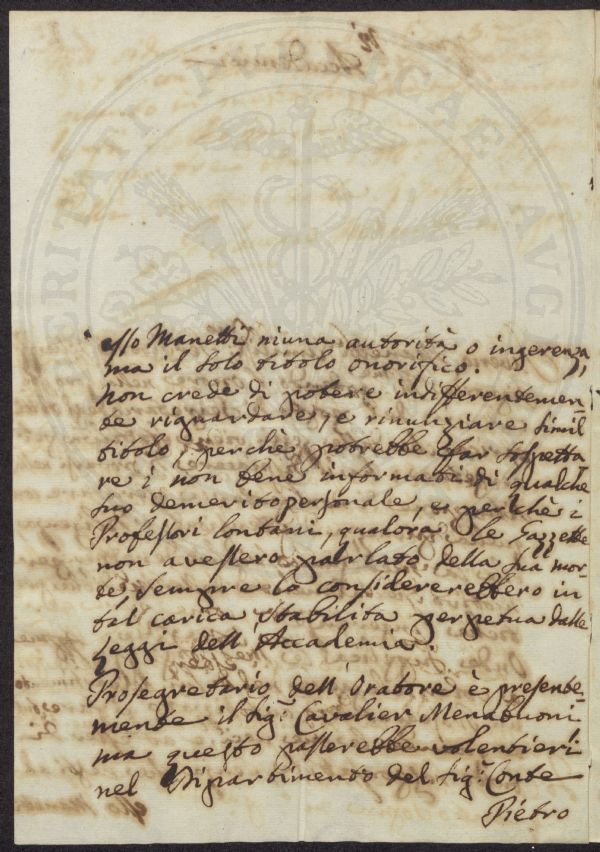 esso Manetti niuna autorità o ingerenza,
ma il solo titolo onorifico.
Non crede di potere indifferentemen-
te riguardare, e rinunziare simil
titolo, perchè potrebbe far sospetta
re i non bene informati di qualche
suo demerito personale, e perchè i
Professori lontani, qualora le Gazzette
non avessero parlato della sua mor-
te, sempre lo considererebbero in
tal carica stabilita perpetua dalle
Leggi dell'Accademia.
Prosegretario dell'Oratore è presente-
mente il Sig.r Cavalier Menabuoni
ma questo passerebbe volentieri
nel Dipartimento del Sig.r Conte
Pietro